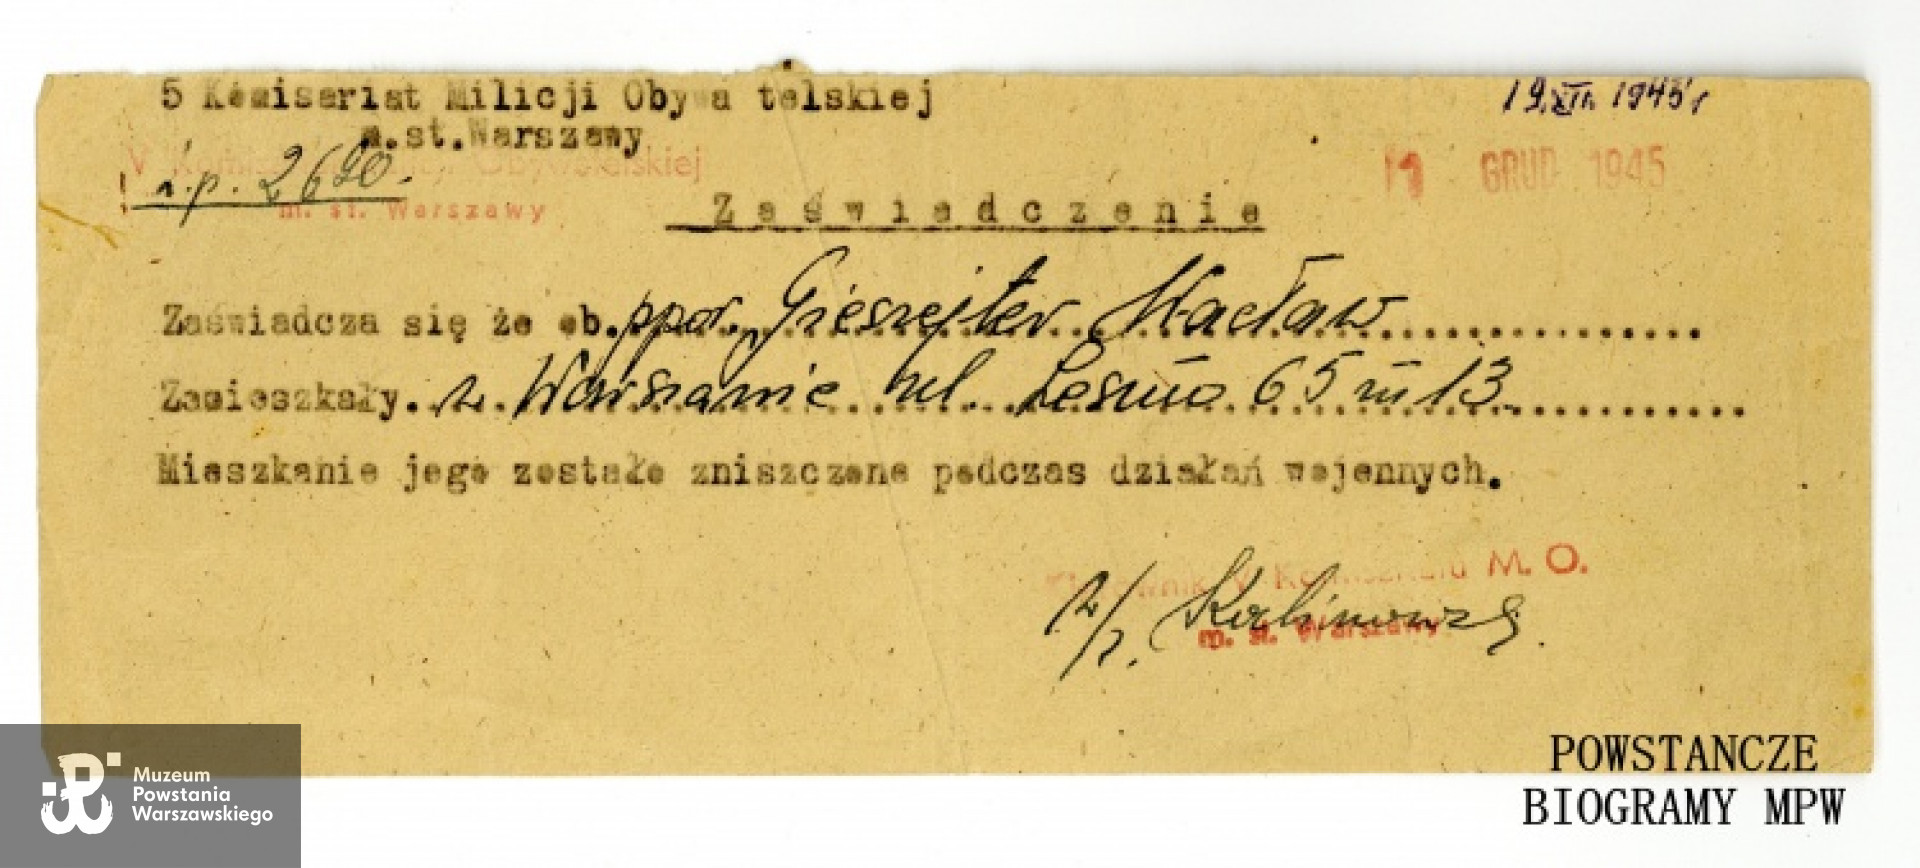 5 Komisariat Milicji Obywatelskiej
m.st.Warszawy
19.XII. 1945 r
V Komis Obywatelskiej
m. st. Warszawy
L.p. 2620.
GRUD 1945
Zaświadczenie
Zaświadcza się że ob. ppor. Gieszejter Wacław
Zamieszkały. w Warszawie ul. Leszno 65 m 13
Mieszkanie jego zostało zniszczone podczas działań wojennych.
Kierownik V Komisariatu M. O.
m. st. Warszawy
Kalinowski
Muzeum
Powstania
Warszawskiego
POWSTANCZE
BIOGRAMY MPW